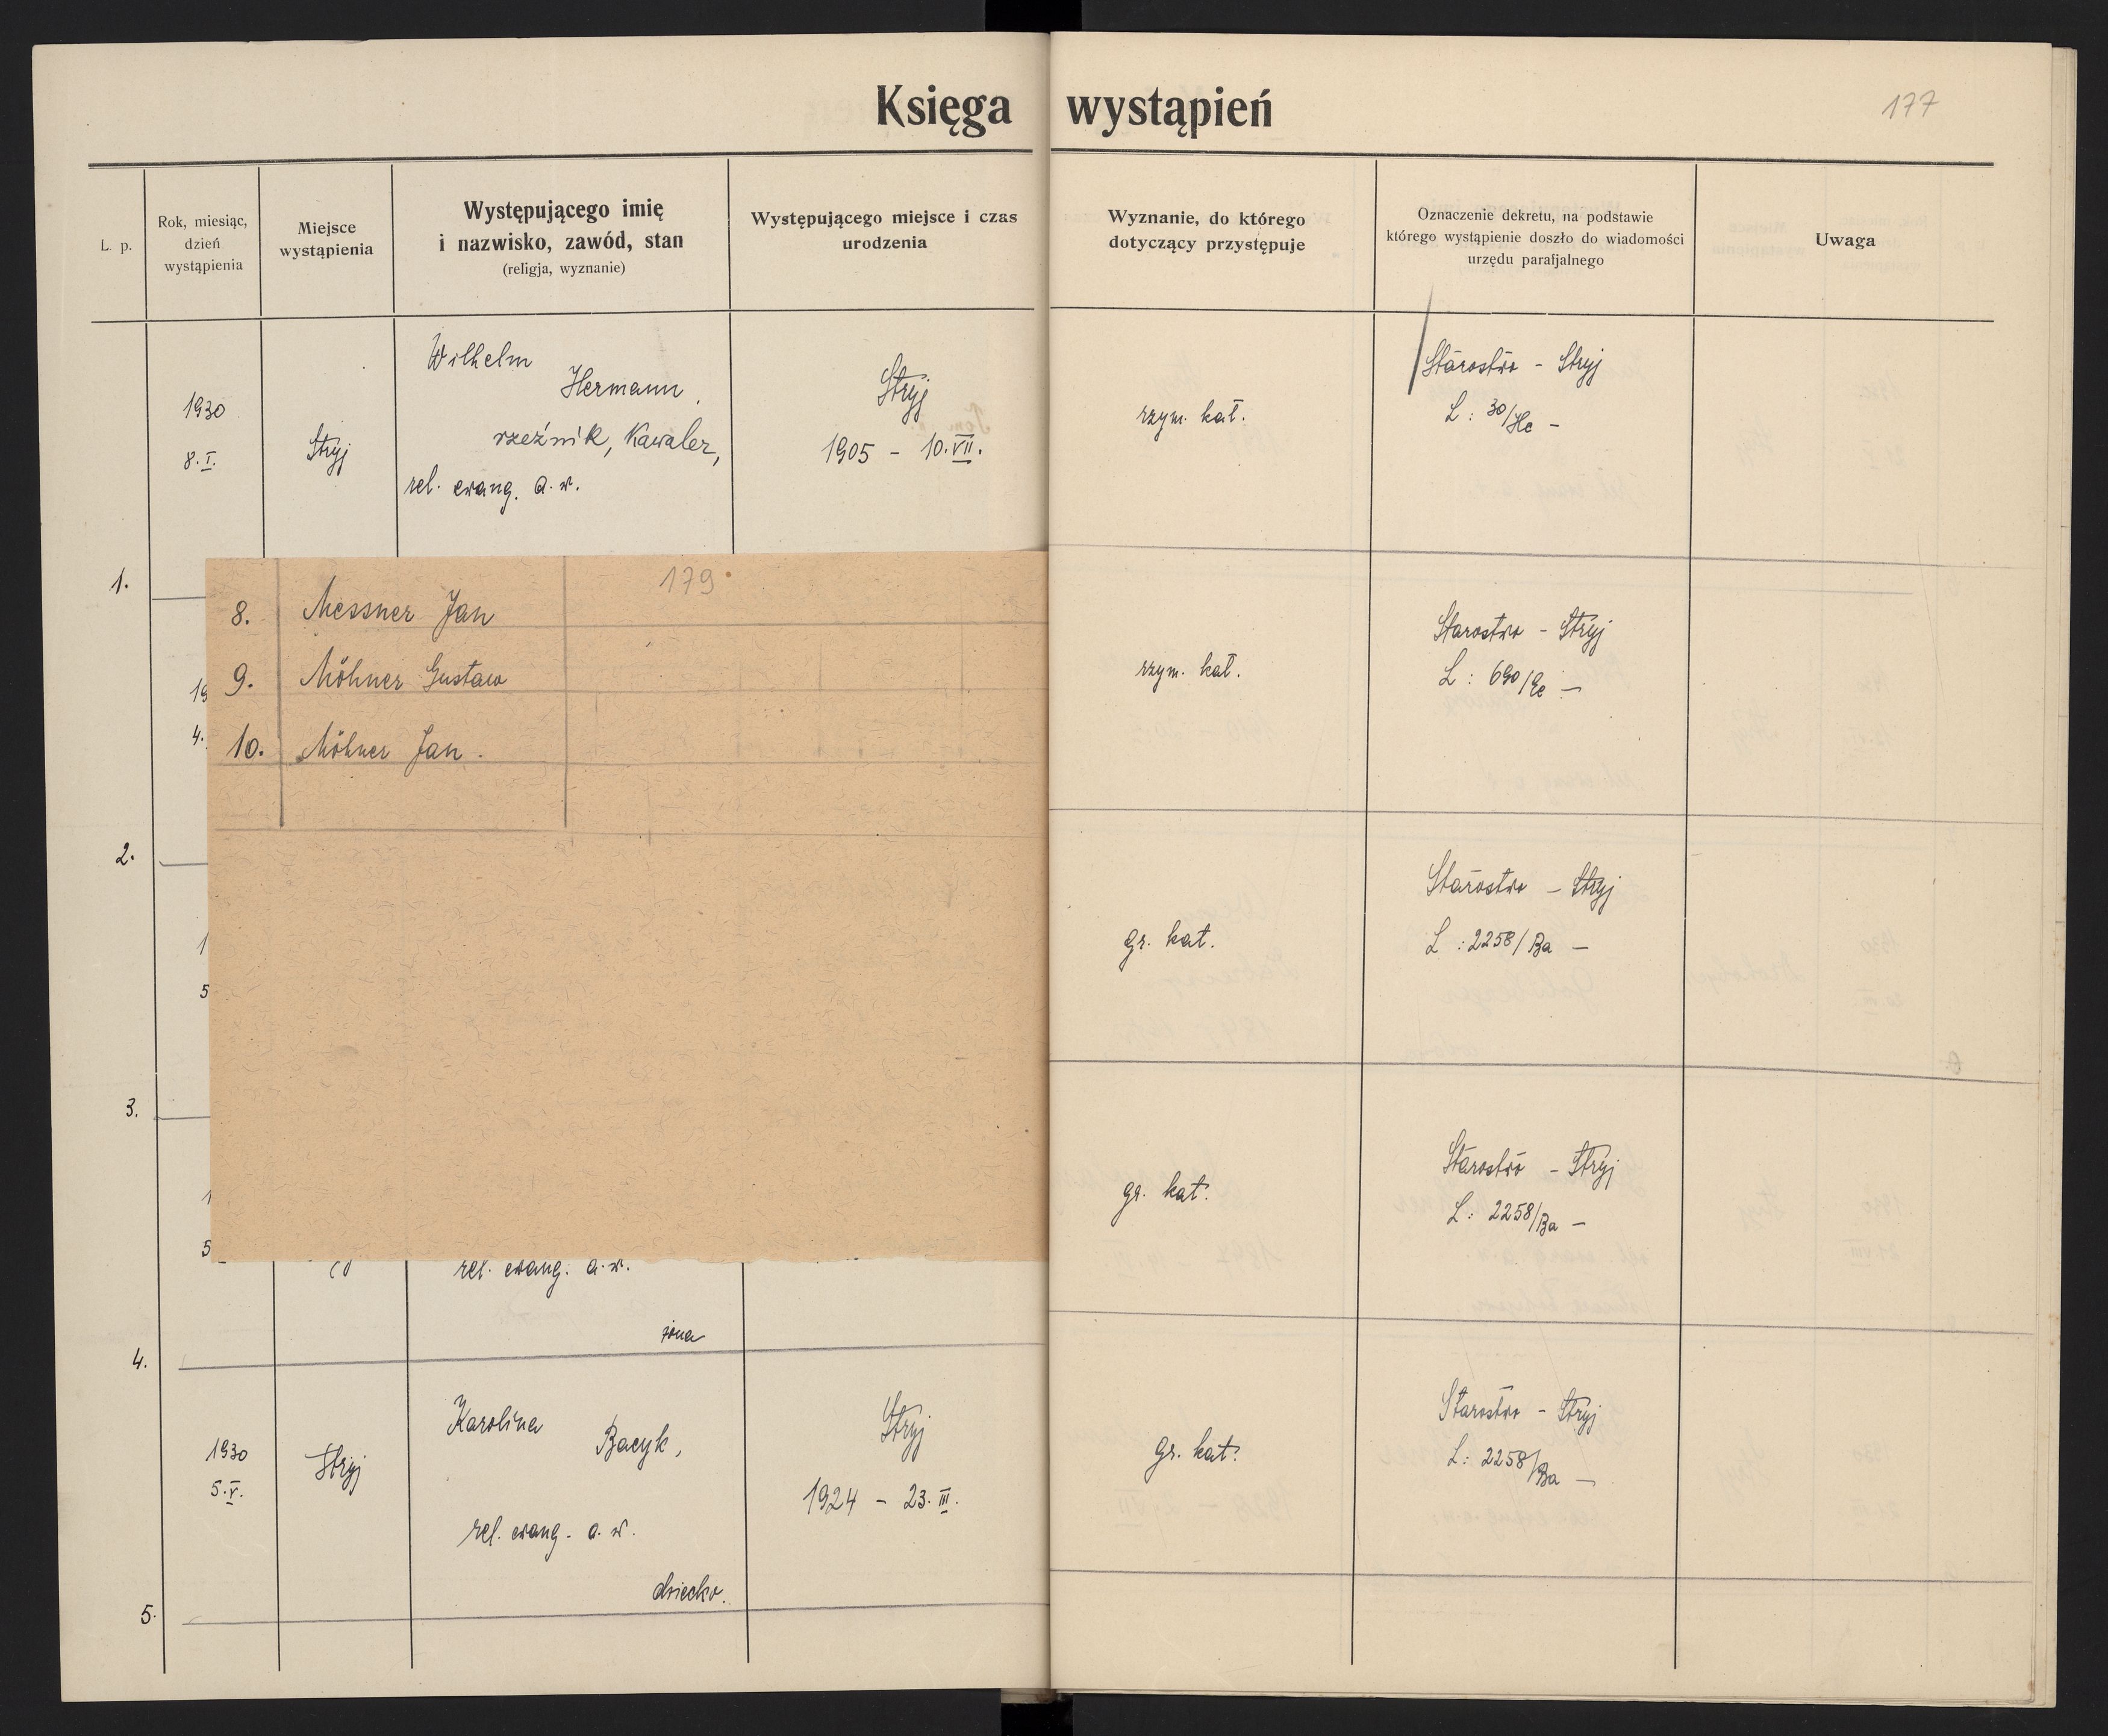 Księga wystąpień
177
L. p.
Rok, miesiąc,
dzień
wystąpienia
Miejsce
wystąpienia
Występującego imię
i nazwisko, zawód, stan
(religja, wyznanie)
Występującego miejsce i czas
urodzenia
Wyznanie, do którego
dotyczący przystępuje
Oznaczenie dekretu, na podstawie
którego wystąpienie doszło do wiadomości
urzędu parafjalnego
Uwaga
1.
1930
8. I.
Stryj
Wilhelm
Hermann,
rzeźnik, Kawaler,
rel. ewang. a. w.
Stryj
1905 - 10. VII.
rzym. kat.
Starostwo - Stryj
L: 30/He -
179
8. Messner Jan
9. Möhner Gustaw
10. Möhner Jan.
2.
19
4.
rzym. kat.
Starostwo - Stryj
L: 690/Ge -
3.
1
5
gr. kat.
Starostwo - Stryj
L: 2258/Ba -
4.
1
5
rel. ewang. a. w.
żona
gr. kat.
Starostwo - Stryj
L: 2258/Ba -
5.
1930
5. V.
Stryj
Karolina
Bacyk,
rel. ewang. a. w.
dziecko.
Stryj
1924 - 23. III.
gr. kat.
Starostwo - Stryj
L: 2258/Ba -